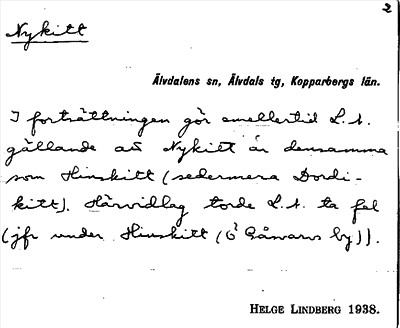 2
Nykitt
Älvdalens sn, Älvdals tg, Kopparbergs län.
I fortsättningen gör emellertid L.A.
gällande att Nykitt är densamma
som Hinskitt (sedermera Dordi-
kitt). Härvidlag torde L.A. ta fel
(jfr under Hinskitt (Ö Råwarns by)).
HELGE LINDBERG 1938.